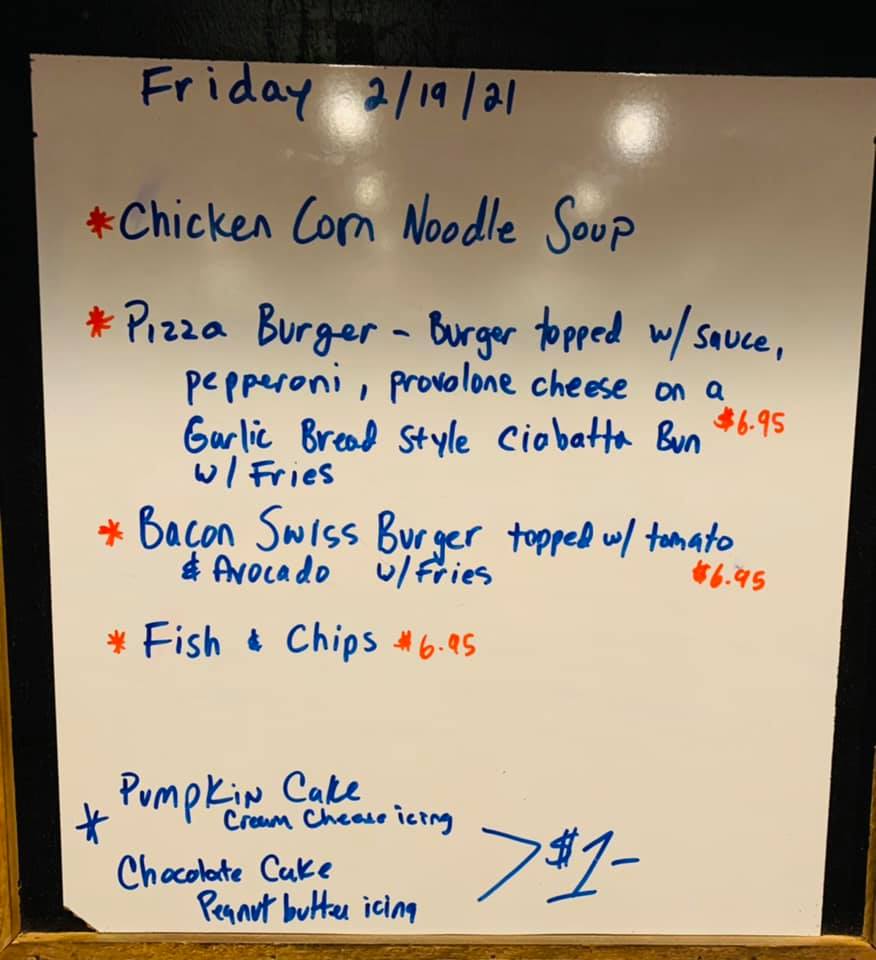 Friday 2/19/21
* Chicken Corn Noodle Soup
* Pizza Burger - Burger topped w/ sauce,
pepperoni, provolone cheese on a
Garlic Bread Style Ciabatta Bun $6.95
w/ Fries
* Bacon Swiss Burger topped w/ tomato
& Avocado w/ Fries $6.95
* Fish & Chips $6.95
Pumpkin Cake
* Cream Cheese icing
> $1-
Chocolate Cake
Peanut butter icing